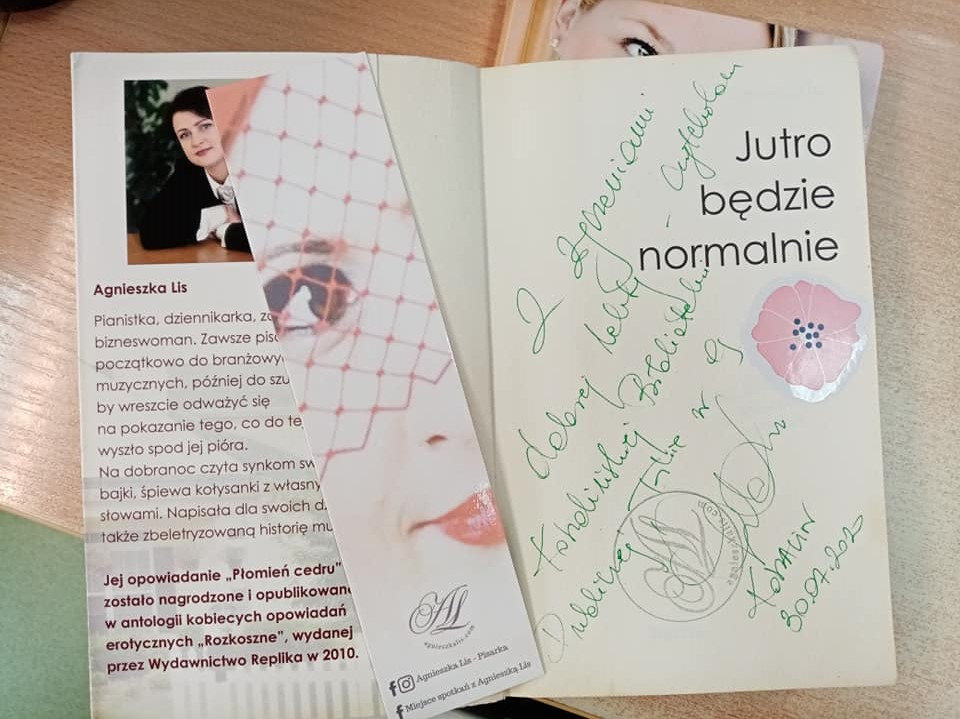 Agnieszka Lis
Pianistka, dziennikarka,
bizneswoman. Zawsze
początkowo do branżowy
muzycznych, później do szu
by wreszcie odważyć się
na pokazanie tego, co do te
wyszło spod jej pióra.
Na dobranoc czyta synkom sw
bajki, śpiewa kołysanki z własny
słowami. Napisała dla swoich d
także zbeletryzowaną historię mu
Jej opowiadanie „Płomień cedru"
zostało nagrodzone i opublikowane
w antologii kobiecych opowiadań
erotycznych „Rozkoszne", wydanej
przez Wydawnictwo Replika w 2010.
AL
agnieszkalis.com
Agnieszka Lis - Pisarka
Miejsce spotkań z Agnieszką Lis
Jutro
będzie
normalnie
Z życzeniami
dobrej lektury - czytelnikom
Publicznej w
AL
agnieszkalis.com
30.07.202